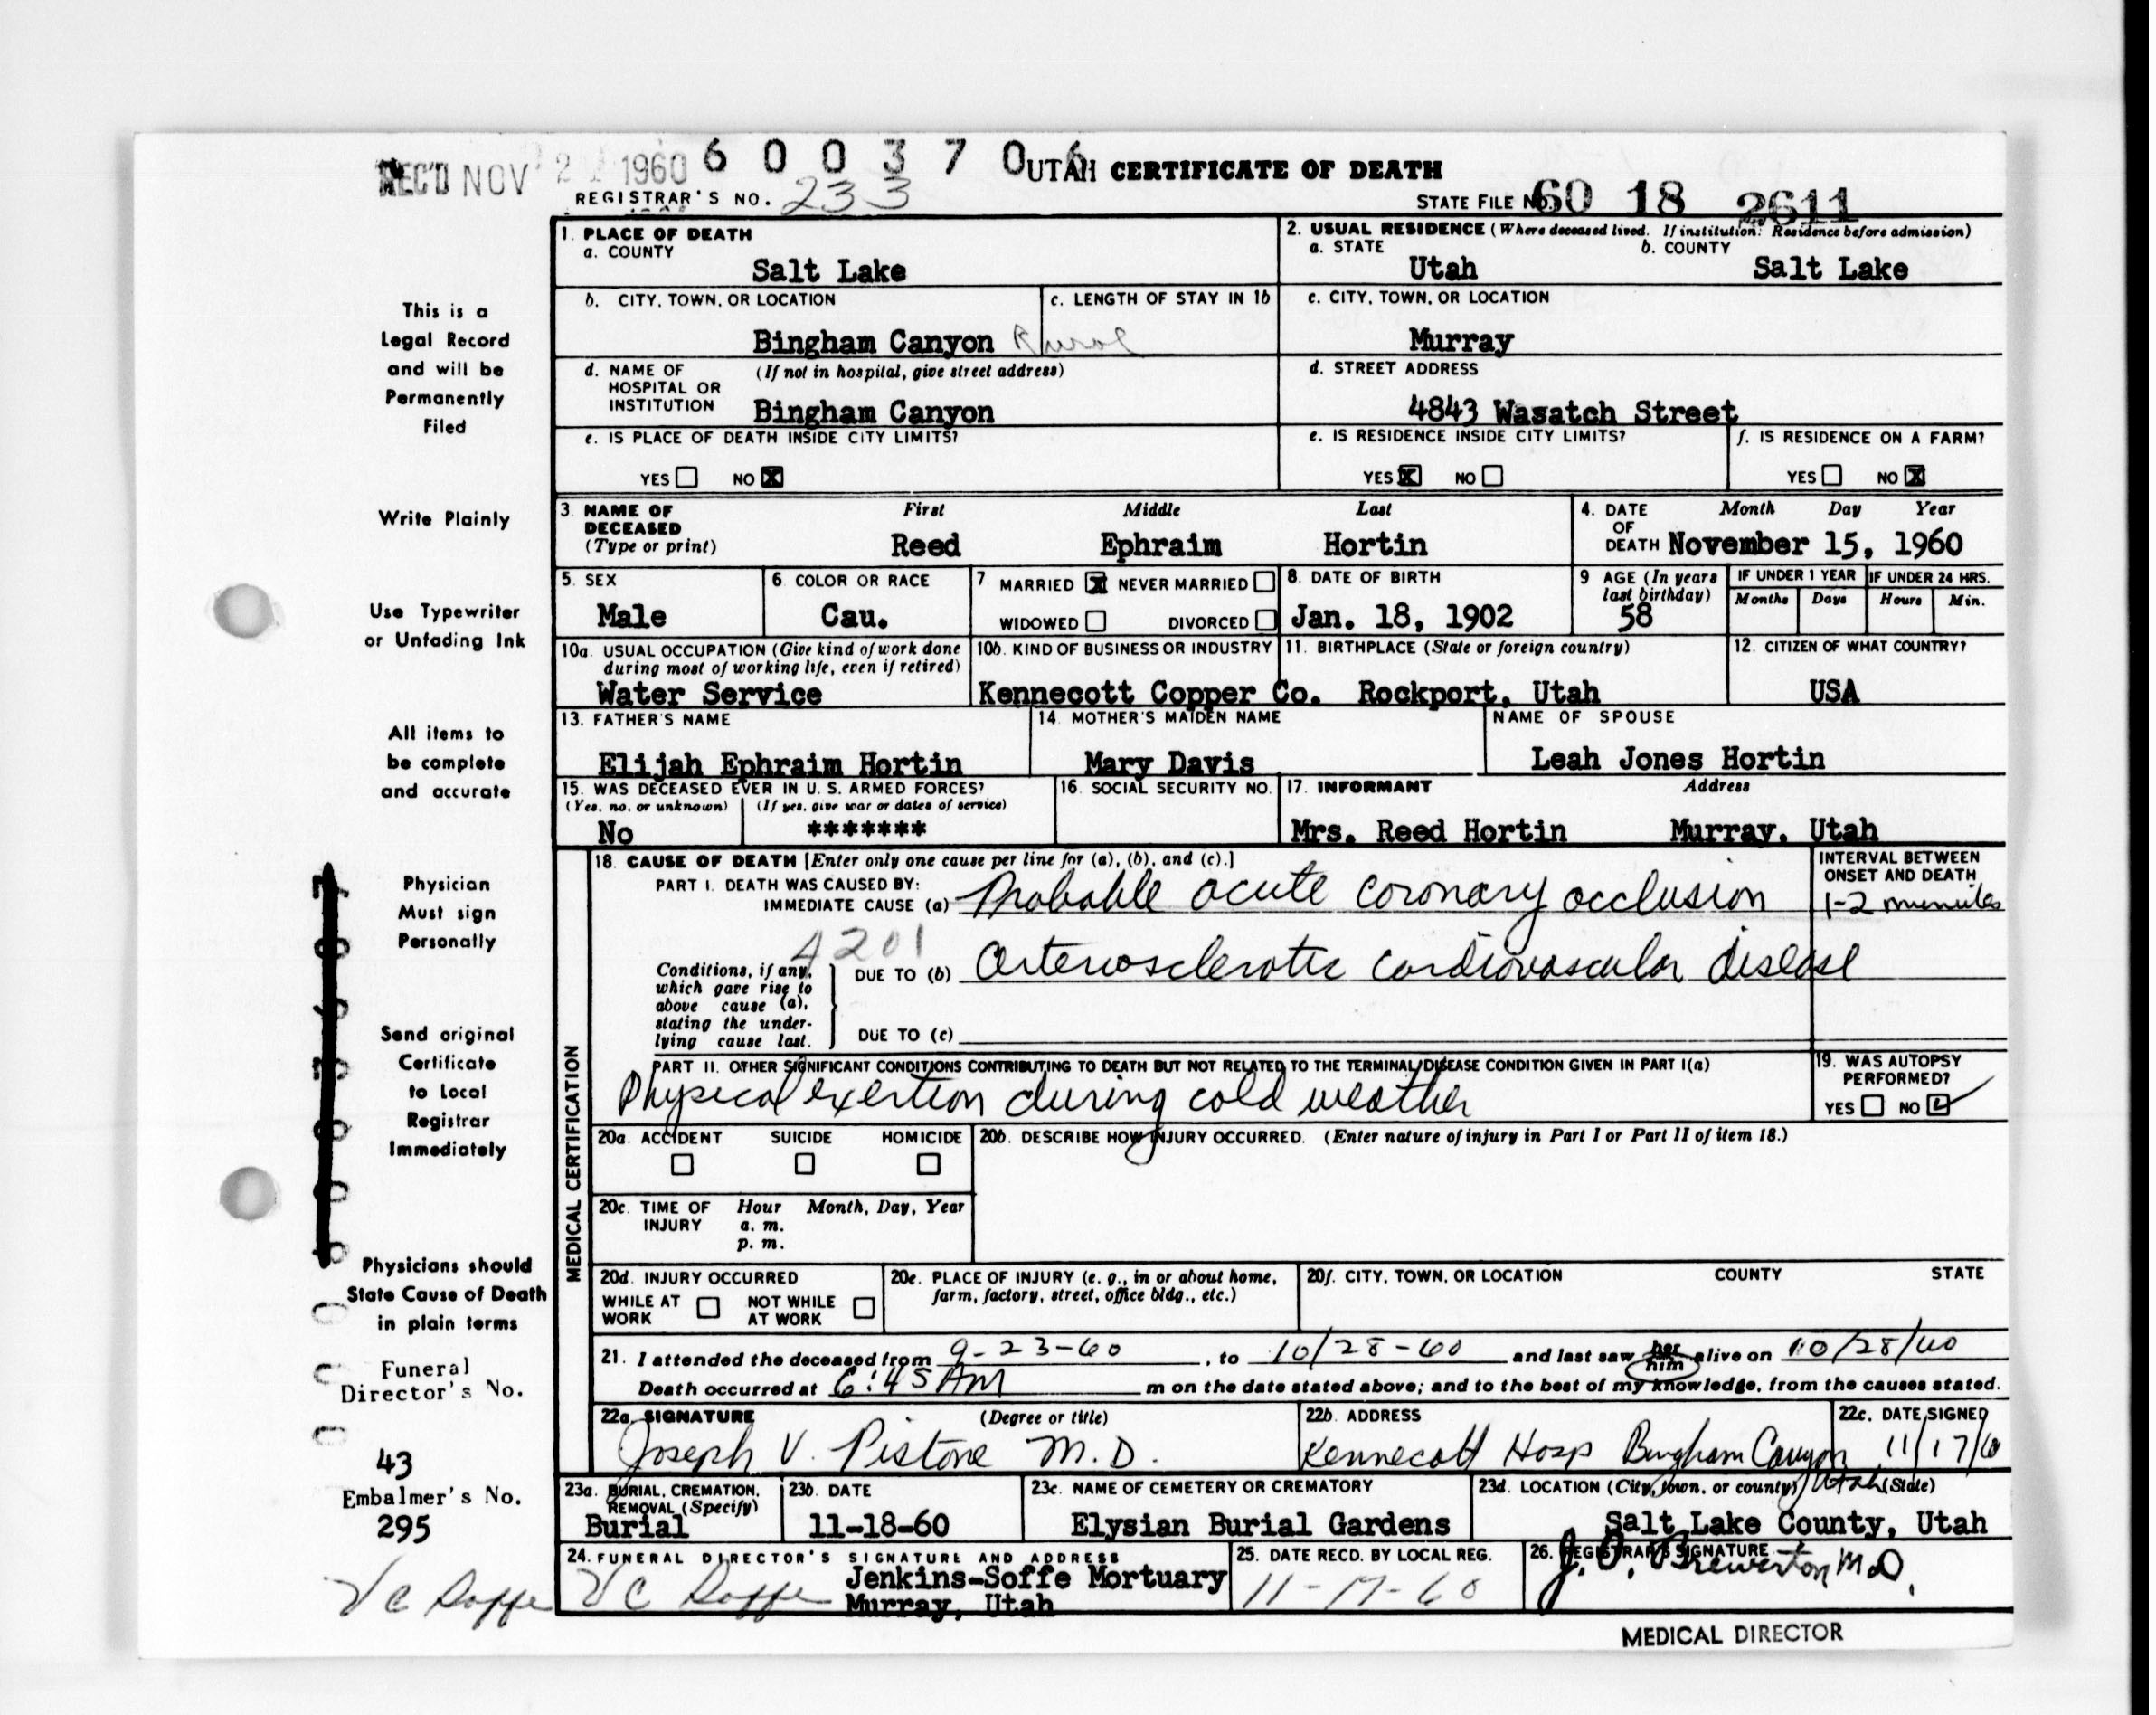 REC'D NOV 2 1960 6 0 0 3 7 0 6 UTAH CERTIFICATE OF DEATH
REGISTRAR'S NO. 233 STATE FILE NO. 60 18 2611
1. PLACE OF DEATH
a. COUNTY
Salt Lake
2. USUAL RESIDENCE (Where deceased lived. If institution: Residence before admission)
a. STATE b. COUNTY
Utah Salt Lake
b. CITY, TOWN, OR LOCATION c. LENGTH OF STAY IN 1b
Bingham Canyon Rural
c. CITY, TOWN, OR LOCATION
Murray
d. NAME OF (If not in hospital, give street address)
HOSPITAL OR
INSTITUTION Bingham Canyon
d. STREET ADDRESS
4843 Wasatch Street
e. IS PLACE OF DEATH INSIDE CITY LIMITS?
YES NO X
e. IS RESIDENCE INSIDE CITY LIMITS?
YES X NO
f. IS RESIDENCE ON A FARM?
YES NO X
3. NAME OF DECEASED
(Type or print)
First Middle Last
Reed Ephraim Hortin
4. DATE OF DEATH Month Day Year
November 15, 1960
5. SEX
Male
6. COLOR OR RACE
Cau.
7. MARRIED X NEVER MARRIED
WIDOWED DIVORCED
8. DATE OF BIRTH
Jan. 18, 1902
9. AGE (In years
last birthday)
58
IF UNDER 1 YEAR IF UNDER 24 HRS.
Months Days Hours Min.
10a. USUAL OCCUPATION (Give kind of work done
during most of working life, even if retired)
Water Service
10b. KIND OF BUSINESS OR INDUSTRY
Kennecott Copper Co.
11. BIRTHPLACE (State or foreign country)
Rockport, Utah
12. CITIZEN OF WHAT COUNTRY?
USA
13. FATHER'S NAME
Elijah Ephraim Hortin
14. MOTHER'S MAIDEN NAME
Mary Davis
NAME OF SPOUSE
Leah Jones Hortin
15. WAS DECEASED EVER IN U. S. ARMED FORCES?
(Yes, no, or unknown) (If yes, give war or dates of service)
No *******
16. SOCIAL SECURITY NO.
17. INFORMANT Address
Mrs. Reed Hortin Murray, Utah
MEDICAL CERTIFICATION
18. CAUSE OF DEATH [Enter only one cause per line for (a), (b), and (c).]
PART I. DEATH WAS CAUSED BY:
IMMEDIATE CAUSE (a) Probable acute coronary occlusion
INTERVAL BETWEEN
ONSET AND DEATH
1-2 minutes
4201
Conditions, if any,
which gave rise to
above cause (a),
stating the under-
lying cause last.
DUE TO (b) Arteriosclerotic cardiovascular disease
DUE TO (c)
PART II. OTHER SIGNIFICANT CONDITIONS CONTRIBUTING TO DEATH BUT NOT RELATED TO THE TERMINAL DISEASE CONDITION GIVEN IN PART I(a)
Physical exertion during cold weather
19. WAS AUTOPSY
PERFORMED?
YES NO
20a. ACCIDENT SUICIDE HOMICIDE
20b. DESCRIBE HOW INJURY OCCURRED. (Enter nature of injury in Part I or Part II of item 18.)
20c. TIME OF Hour Month, Day, Year
INJURY a. m.
p. m.
20d. INJURY OCCURRED
WHILE AT WORK NOT WHILE AT WORK
20e. PLACE OF INJURY (e. g., in or about home,
farm, factory, street, office bldg., etc.)
20f. CITY, TOWN, OR LOCATION COUNTY STATE
21. I attended the deceased from 9-23-60, to 10/28-60 and last saw her him alive on 10/28/60
Death occurred at 6:45 AM m on the date stated above; and to the best of my knowledge, from the causes stated.
22a. SIGNATURE (Degree or title)
Joseph V. Pistone M.D.
22b. ADDRESS
Kennecott Hosp Bingham Canyon Utah
22c. DATE SIGNED
11/17/60
23a. BURIAL, CREMATION,
REMOVAL (Specify)
Burial
23b. DATE
11-18-60
23c. NAME OF CEMETERY OR CREMATORY
Elysian Burial Gardens
23d. LOCATION (City, town, or county) (State)
Salt Lake County, Utah
24. FUNERAL DIRECTOR'S SIGNATURE AND ADDRESS
V C Soffe Jenkins-Soffe Mortuary
Murray, Utah
25. DATE RECD. BY LOCAL REG.
11-17-60
26. REGISTRAR'S SIGNATURE
J. O. Brewerton M.D.
MEDICAL DIRECTOR
This is a
Legal Record
and will be
Permanently
Filed
Write Plainly
Use Typewriter
or Unfading Ink
All items to
be complete
and accurate
Physician
Must sign
Personally
Send original
Certificate
to Local
Registrar
Immediately
Physicians should
State Cause of Death
in plain terms
Funeral
Director's No.
43
Embalmer's No.
295
V C Soffe